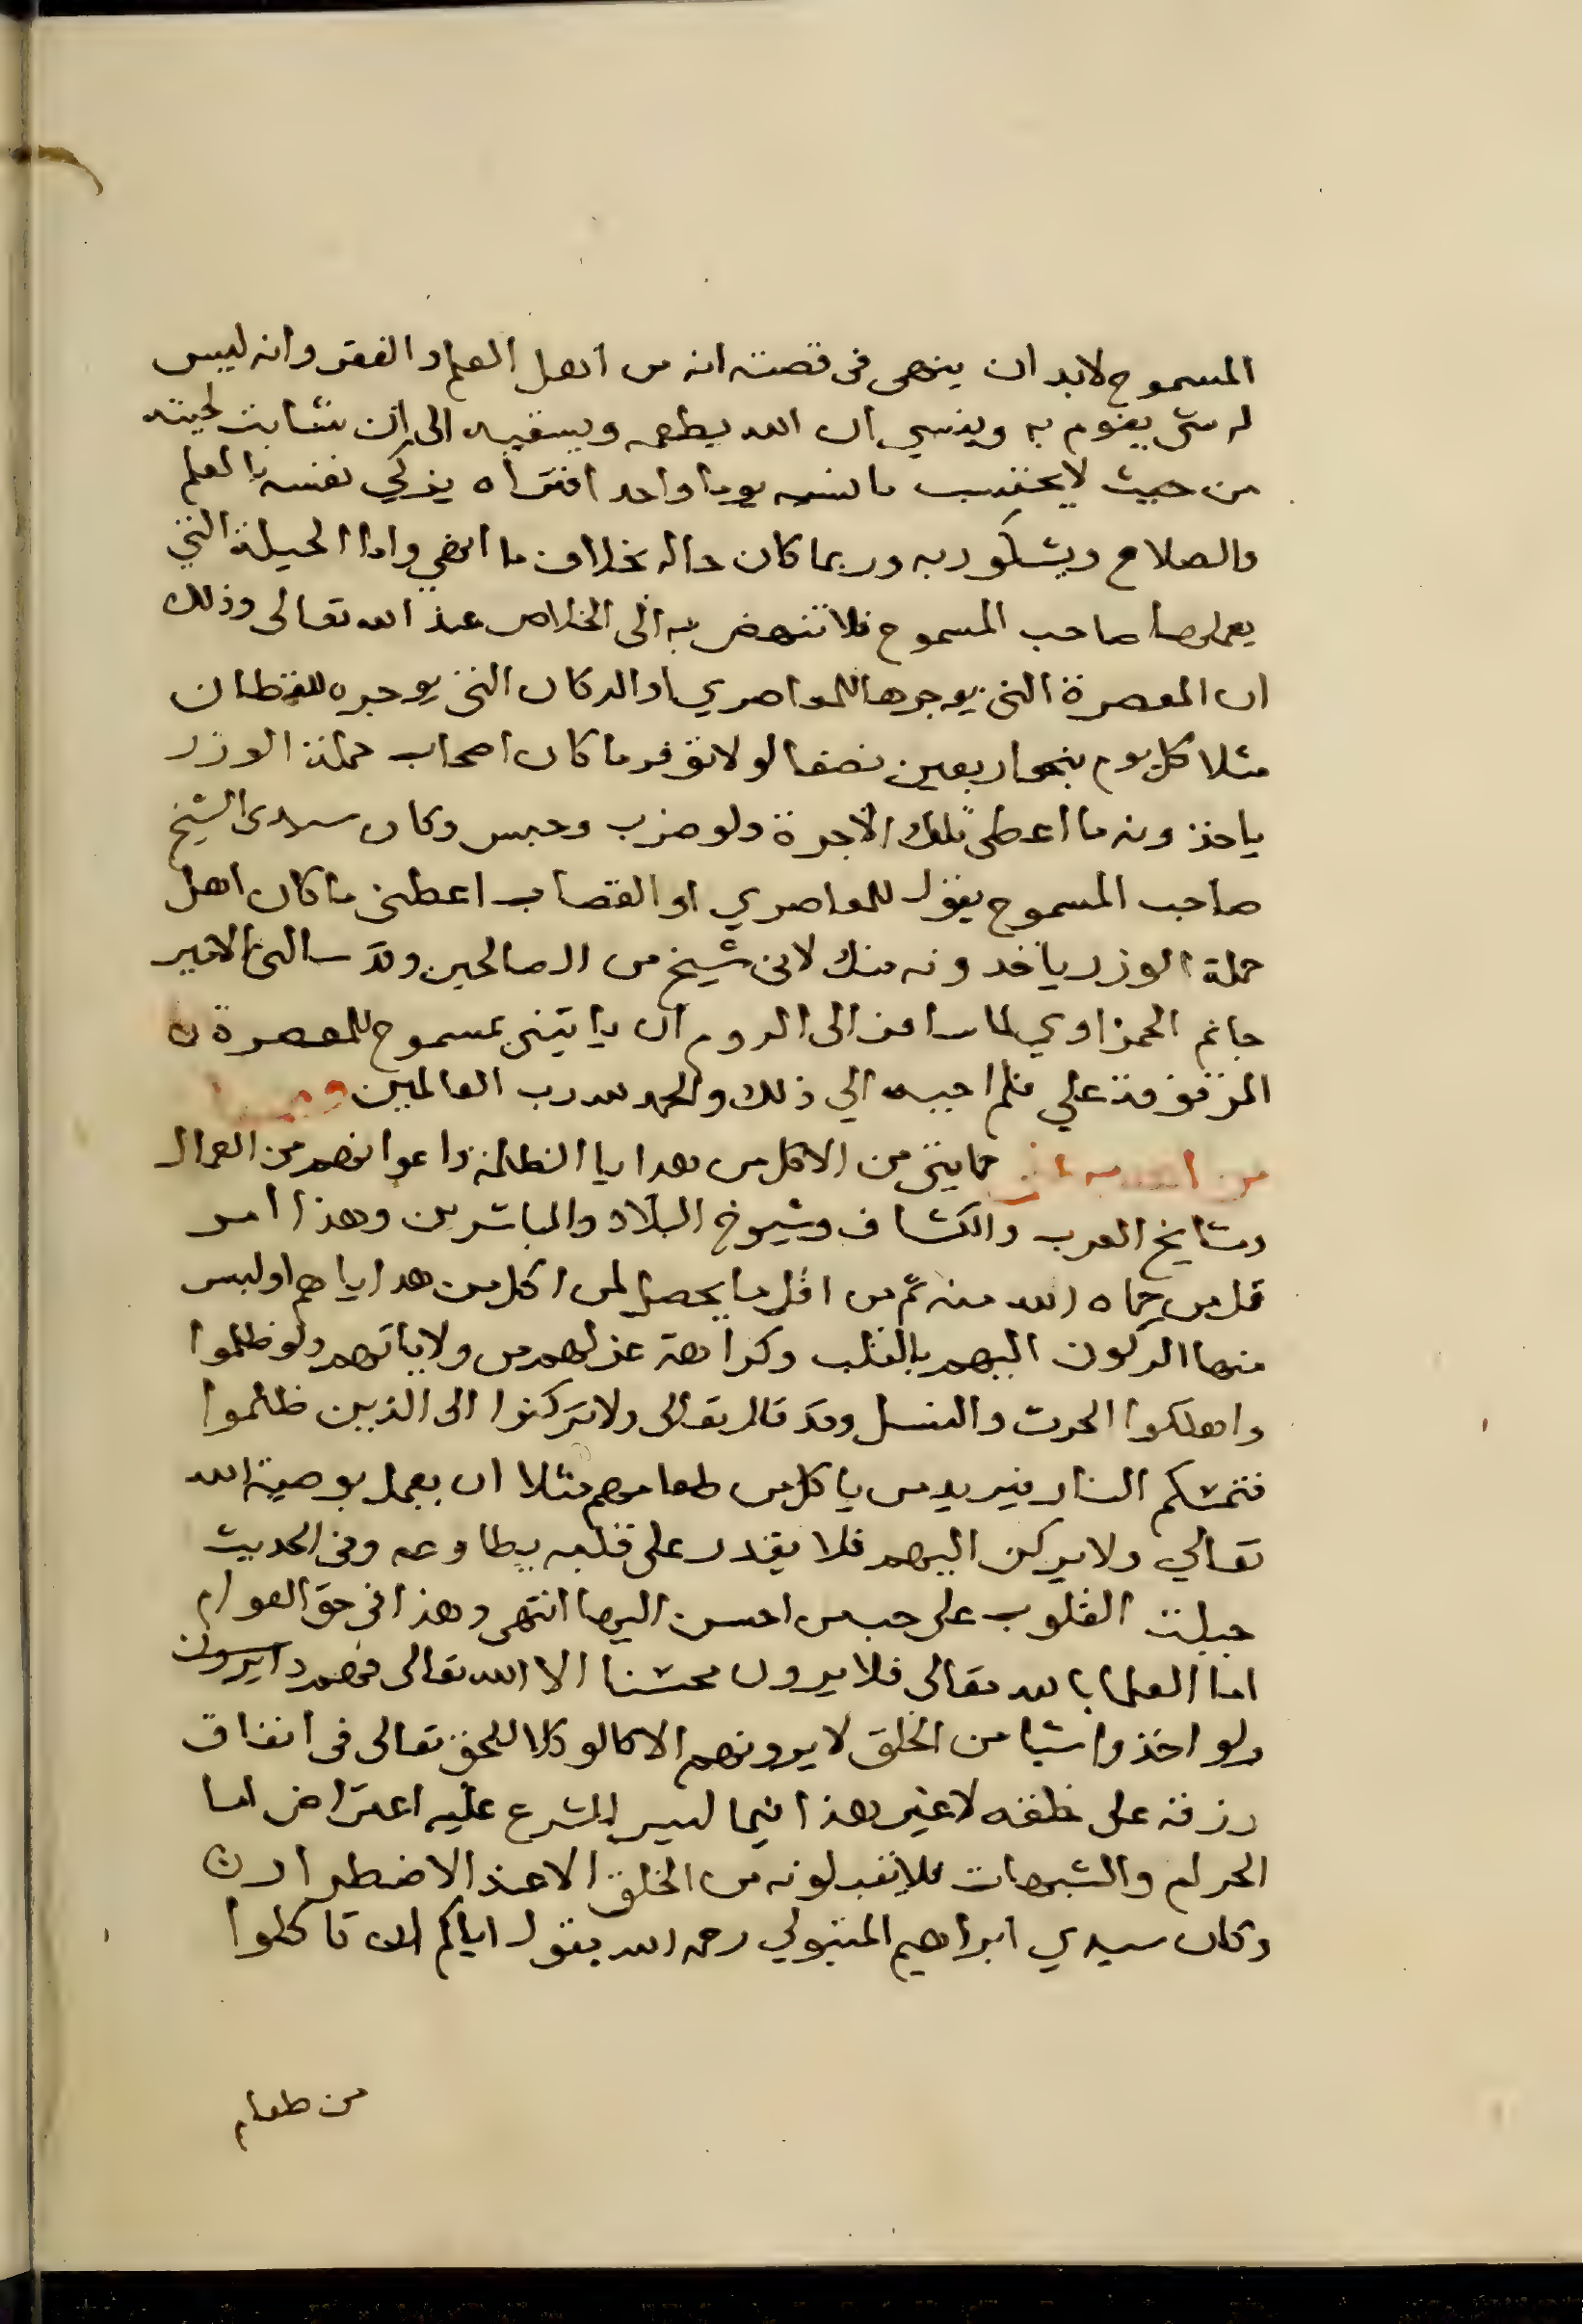 المسموح لابد ان ينهى فى قصته انه من اهل العلم والفقر وانه ليس
له شى يقوم به وينسي ان الله يطعمه ويسقيه الى ان شابت لحيته
من حيث لا يحتسب ما نسيه يوما واحدا فتراه يزكي نفسه بالعلم
والصلاح ويشكو ربه وربما كان حاله بخلاف ما انهي واما الحيلة التي
يعملها صاحب المسموح فلا تنهض به الى الخلاص عند الله تعالى وذلك
ان المعصرة التى يوجرها للمعاصري او الدكان التى يوجره للقطان
مثلا كل يوم بنحو اربعين نصفا لولا توفر ما كان اصحاب حملة الوزر
ياخذونه ما اعطى تلك الاجرة ولو ضرب وحبس وكان سيدى الشيخ
صاحب المسموح يقول للمعاصري او القصاب اعطنى ما كان اهل
حملة الوزر ياخدونه منك لانى شيخ من الصالحين وقد سالنى الامير
جانم الحمزاوي لما سافر الى الروم ان ياتينى بمسموح للمعصرة
الموقوفة علي فلم اجبه الي ذلك والحمد لله رب العالمين ومما
من الله به على حمايتى من الاكل من هدايا الظلمة واعوانهم من العمال
ومشايخ العرب والكشاف وشيوخ البلاد والمباشرين وهذا امر
قل من حماه الله منه ثم من اقل ما يحصل لمن اكل من هداياهم او لبس
منها الركون اليهم بالقلب وكراهة عزلهم من ولاياتهم ولو ظلموا
واهلكوا الحرث والنسل وقد قال تعالى ولا تركنوا الى الذين ظلموا
فتمسكم النار فيريد من ياكل من طعامهم مثلا ان يعمل بوصية الله
تعالي ولا يركن اليهم فلا يقدر على قلبه يطاوعه وفى الحديث
جبلت القلوب على حب من احسن اليها انتهى وهذا فى حق العوام
اما العلما بالله تعالى فلا يرون محسنا الا الله تعالى فهم دايرون
ولو اخذوا شيا من الخلق لا يرونهم الا كالوكلا للحق تعالى فى انفاق
رزقه على خلقه لا غير هذا فيما ليس للشرع عليه اعتراض اما
الحرام والشبهات فلا يقبلونه من الخلق الا عند الاضطرار
وكان سيدي ابراهيم المتبولي رحمه الله يقول اياكم ان تاكلوا
من طعام